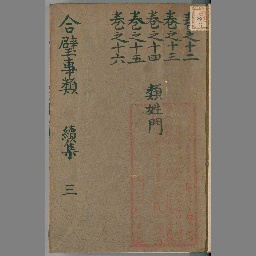 卷之十二
卷之十三
卷之十四
卷之十五
卷之十六
類姓門
合璧事類 續集 三